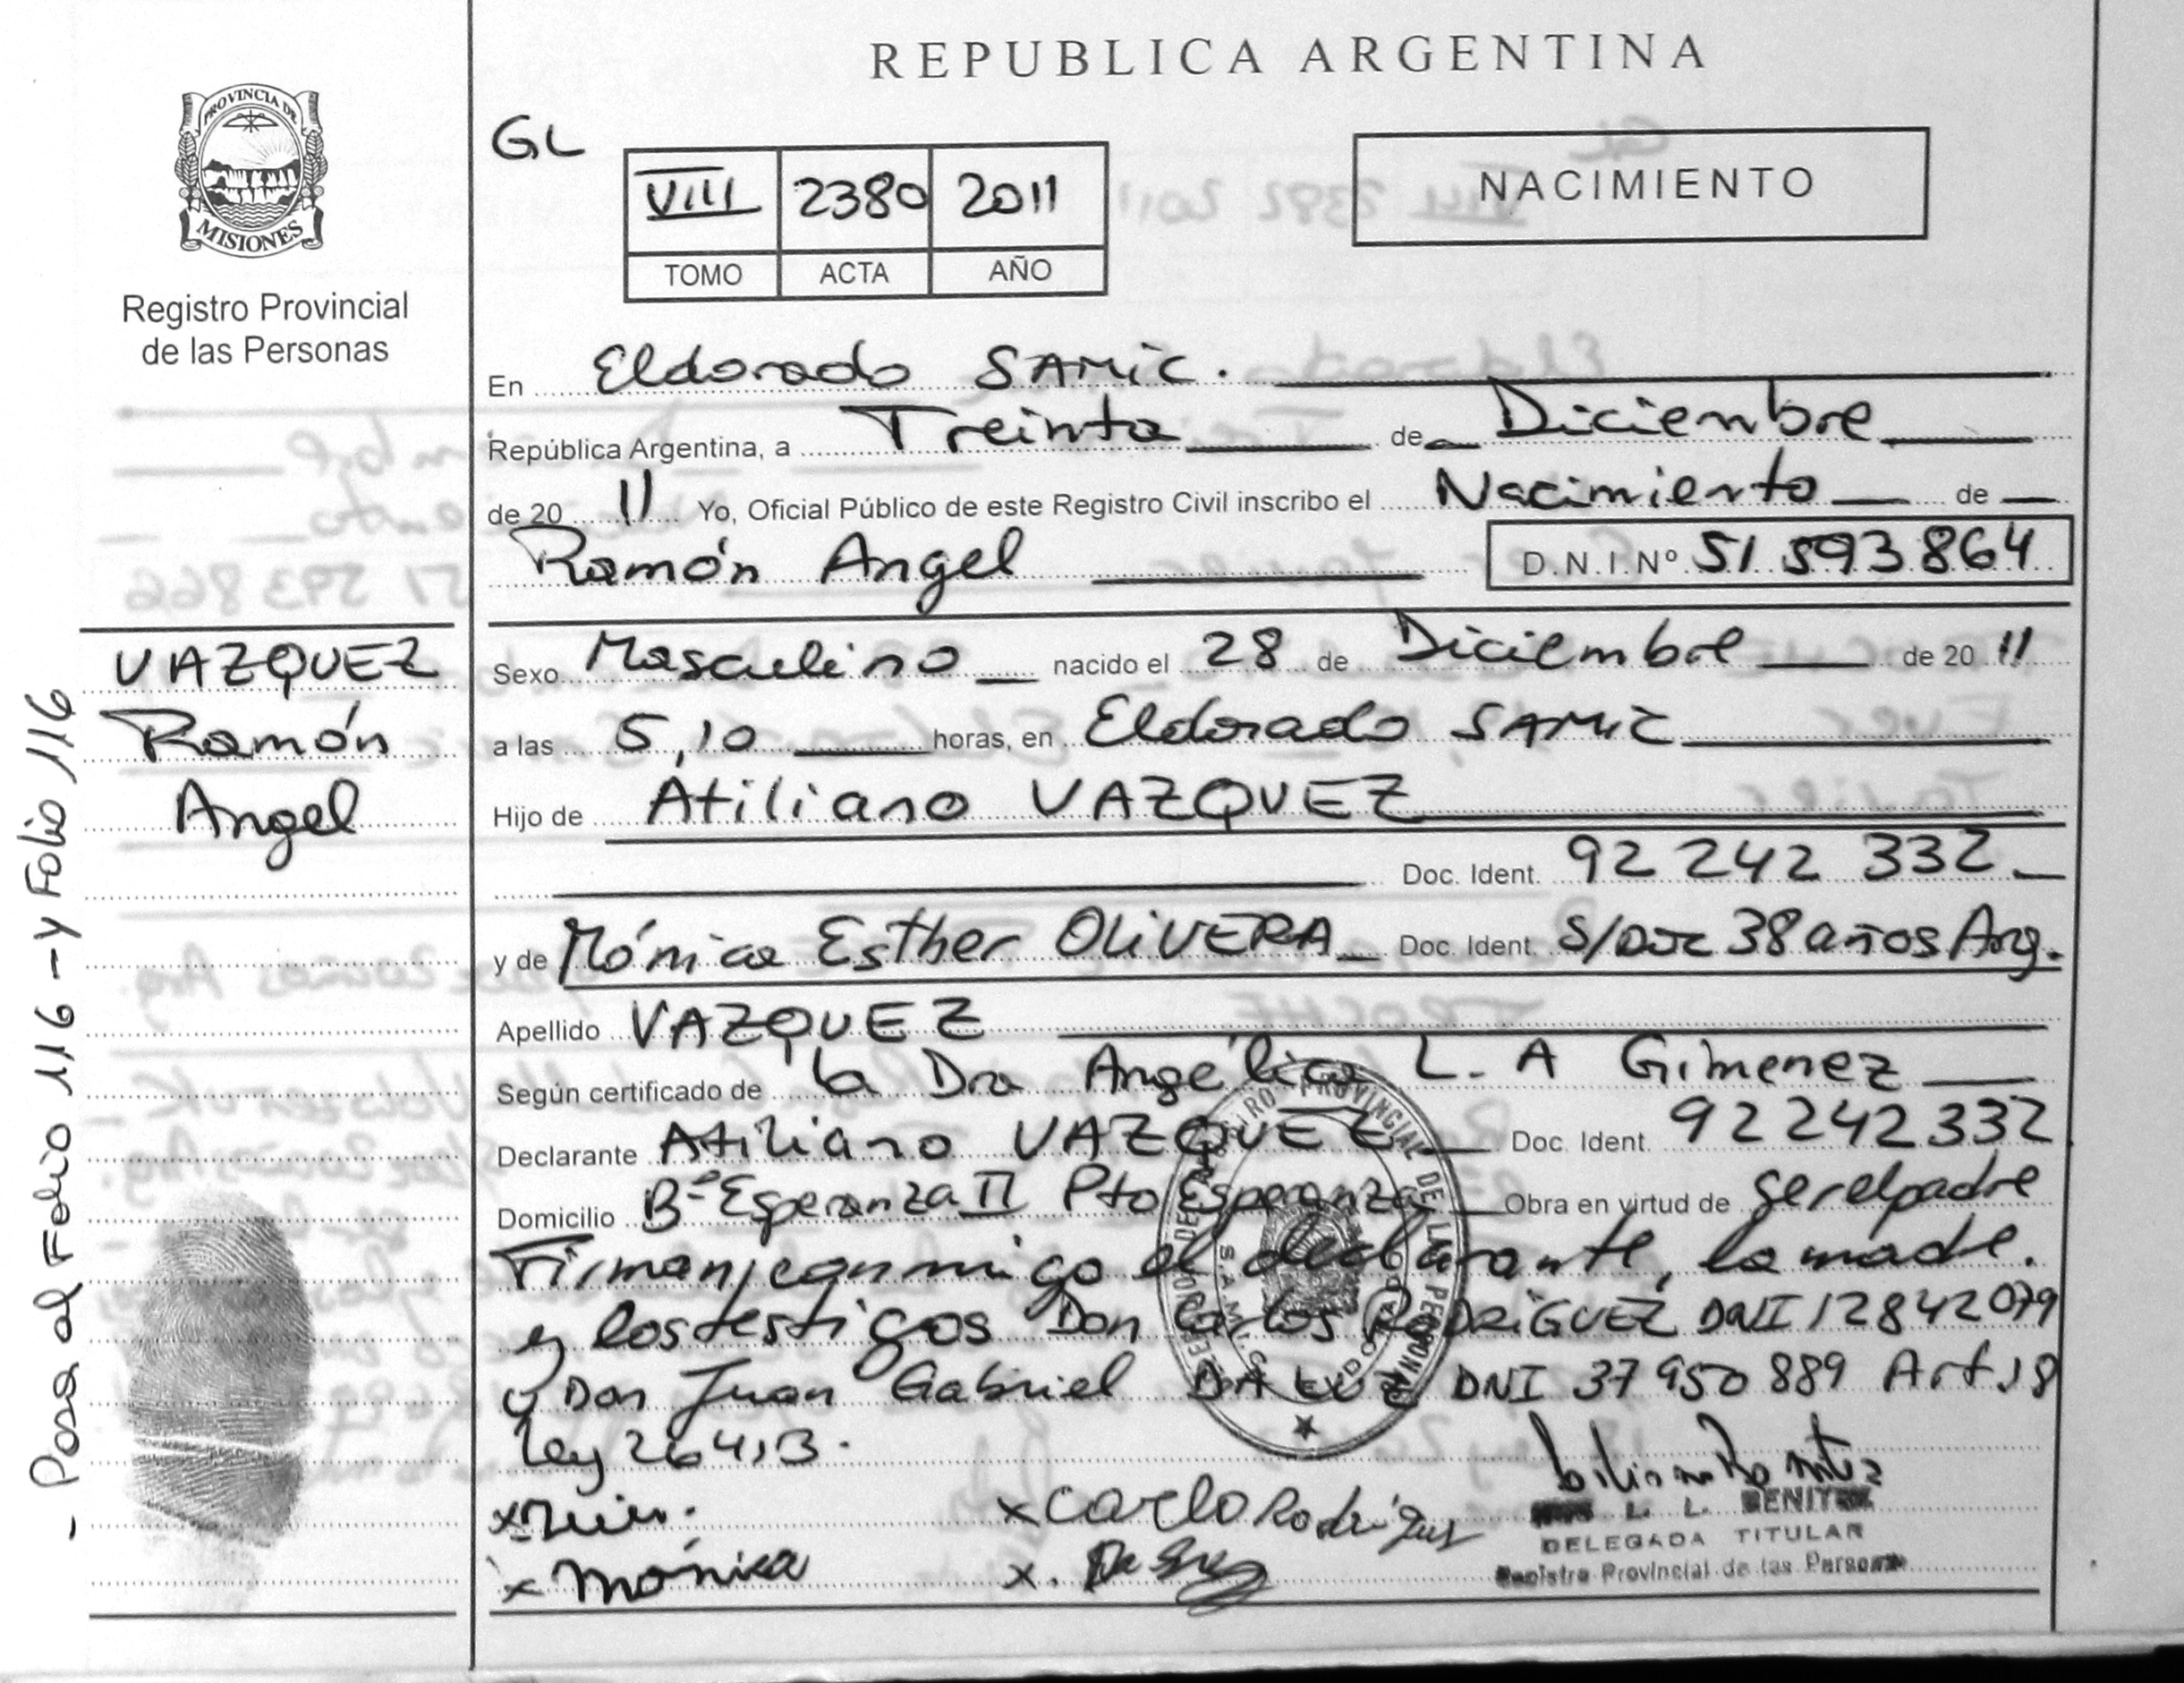 REPUBLICA ARGENTINA
PROVINCIA DE
MISIONES
Registro Provincial
de las Personas
GL
VIII 2380 2011
TOMO ACTA AÑO
NACIMIENTO
En Eldorado SAMIC.
República Argentina, a Treinta de Diciembre
de 20 11 Yo, Oficial Público de este Registro Civil inscribo el Nacimiento de
Ramón Angel D.N.I.Nº 51 593 864
VAZQUEZ
Ramón
Angel
- Pasa al Folio 116 - y Folio 116
Sexo Masculino nacido el 28 de Diciembre de 20 11
a las 5,10 horas, en Eldorado SAMIC
Hijo de Atiliano VAZQUEZ
Doc. Ident. 92 242 332
y de Mónica Esther OLIVERA Doc. Ident. S/Doc 38 años Arg.
Apellido VAZQUEZ
Según certificado de la Dra Angélica L. A Gimenez
Declarante Atiliano VAZQUEZ Doc. Ident. 92 242 332
Domicilio Bº Esperanza II Pto Esperanza Obra en virtud de ser el padre
Firman conmigo el declarante, la madre.
y los testigos Don Carlos RODRIGUEZ DNI 12842079
y Don Juan Gabriel DA LUZ DNI 37 950 889 Art 18
Ley 26413.
x Carlo Rodriguez
x Mónica
x.
L. L. BENITEZ
DELEGADA TITULAR
Registro Provincial de las Personas